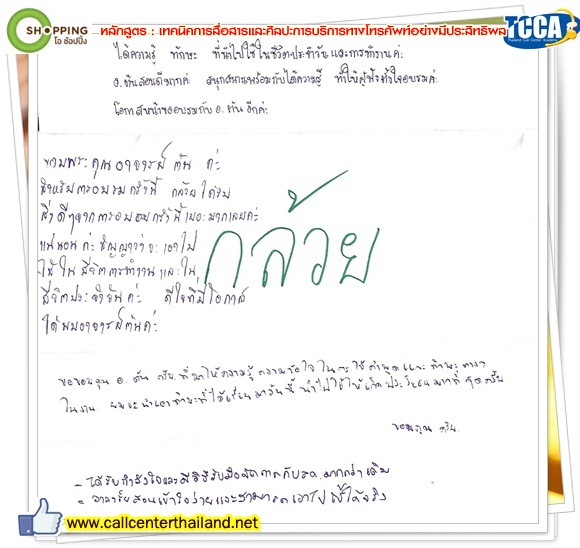 SHOPPING
โอ ช้อปปิ้ง
หลักสูตร : เทคนิคการสื่อสารและศิลปะการบริการทางโทรศัพท์อย่างมีประสิทธิผล
TCCA
Thailand Call Center Academy
ได้ความรู้ ทักษะ ที่นำไปใช้ในชีวิตประจำวันและการทำงานค่ะ
อ.ตันสอนดีมากค่ะ สนุกสนานพร้อมกับได้ความรู้ ทำให้ผู้ฟังตั้งใจอบรมค่ะ
โอกาสหน้าขออบรมกับ อ. ตัน อีกค่ะ
ขอบพระคุณอาจารย์ ตัน ค่ะ
สำหรับการอบรมครั้งนี้ กล้วยได้รับ
สิ่งดีๆจากการอบรมครั้งนี้เยอะมากเลยค่ะ
แน่นอนค่ะ สัญญาว่าจะเอาไป
ใช้ในชีวิตการทำงานและใน
ชีวิตประจำวันค่ะ ดีใจที่มีโอกาส
ได้พบอาจารย์ตันค่ะ
กล้วย
ขอขอบคุณ อ. ตัน ครับ ที่มาให้ความรู้ ความเข้าใจ ในการใช้คำพูดและทักษะต่างๆ
ในงาน ผมจะนำเอาทักษะที่ได้เรียนมาวันนี้ นำไปใช้ให้เกิดประโยชน์มากที่สุดครับ
ขอบคุณ ครับ
- ได้รับกำลังใจและมีวิธีรับมือจัดการกับ มากกว่าเดิม
- อาจารย์สอนเข้าใจง่ายและสามารถเอาไปใช้ได้จริง
www.callcenterthailand.net